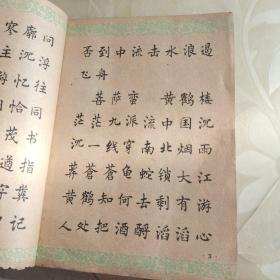 寥廓问
主沉浮
游忆往
恰同
茂书
遒指
字粪
记
否到中流击水浪遏
飞舟
菩萨蛮 黄鹤楼
茫茫九派流中国沉
沉一线穿南北烟雨
莽苍苍龟蛇锁大江
黄鹤知何去剩有游
人处把酒酹滔滔心
3